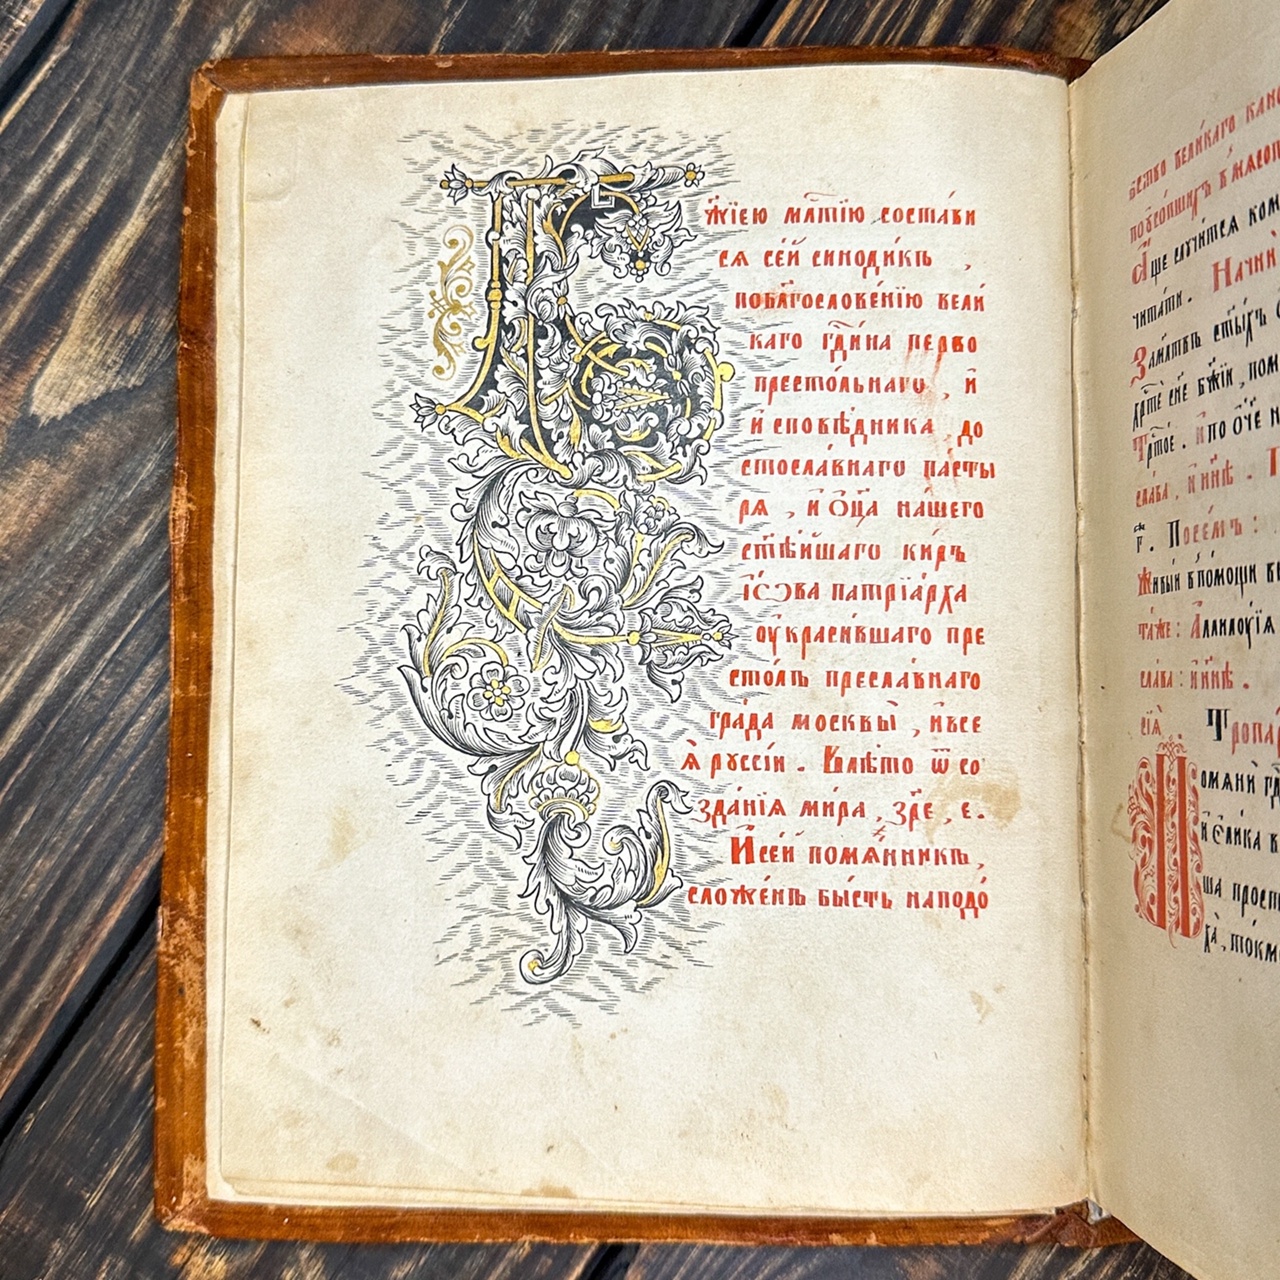 Бж҃їею мл҃тїю состави
ся се́й синоди́къ ,
побл҃гослове́нїю вели́
каго гд҃и́на перво
престо́льнаго , и҆
и҆сповѣ́дника , до
стосла́внаго па́сты
ря , и҆ ѻ҆ц҃а на́шего
ст҃ѣ́йшаго ки́ръ
І҆ѡ́ва патрїа́рха
оу҆краси́вшаго пре
сто́лъ пресла́внаго
гра́да москвы̀ , и҆все
я҆̀ русси́и . Влѣ́то ѿ со
зда́нїя ми́ра , зр҃е , е .
И҆ се́й помя́нникъ ,
сложе́нъ бы́сть наподо́
вели́каго
А҆́ще случи́тся
чита́ти . Начи́
За моли́твъ ст҃ы́хъ
хр҃те́ сн҃е бж҃їй , пом
Трт҃о́е . И҆ по о́ч҃е н
сла́ва , и҆ ны́нѣ .
Посе́мъ :
Живы́й в по́мощи
та́же : А҆ллилоу́їя
сла́ва : и҆ ны́нѣ .
Тропа́р
Помянѝ
и҆ е҆ли́ка в